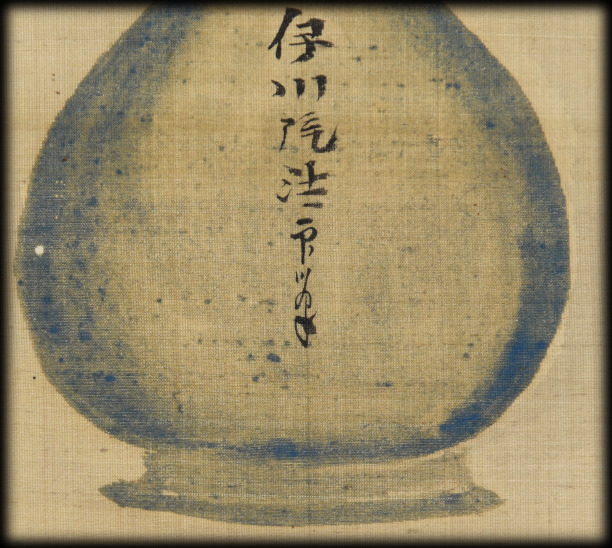 伊川院法印筆